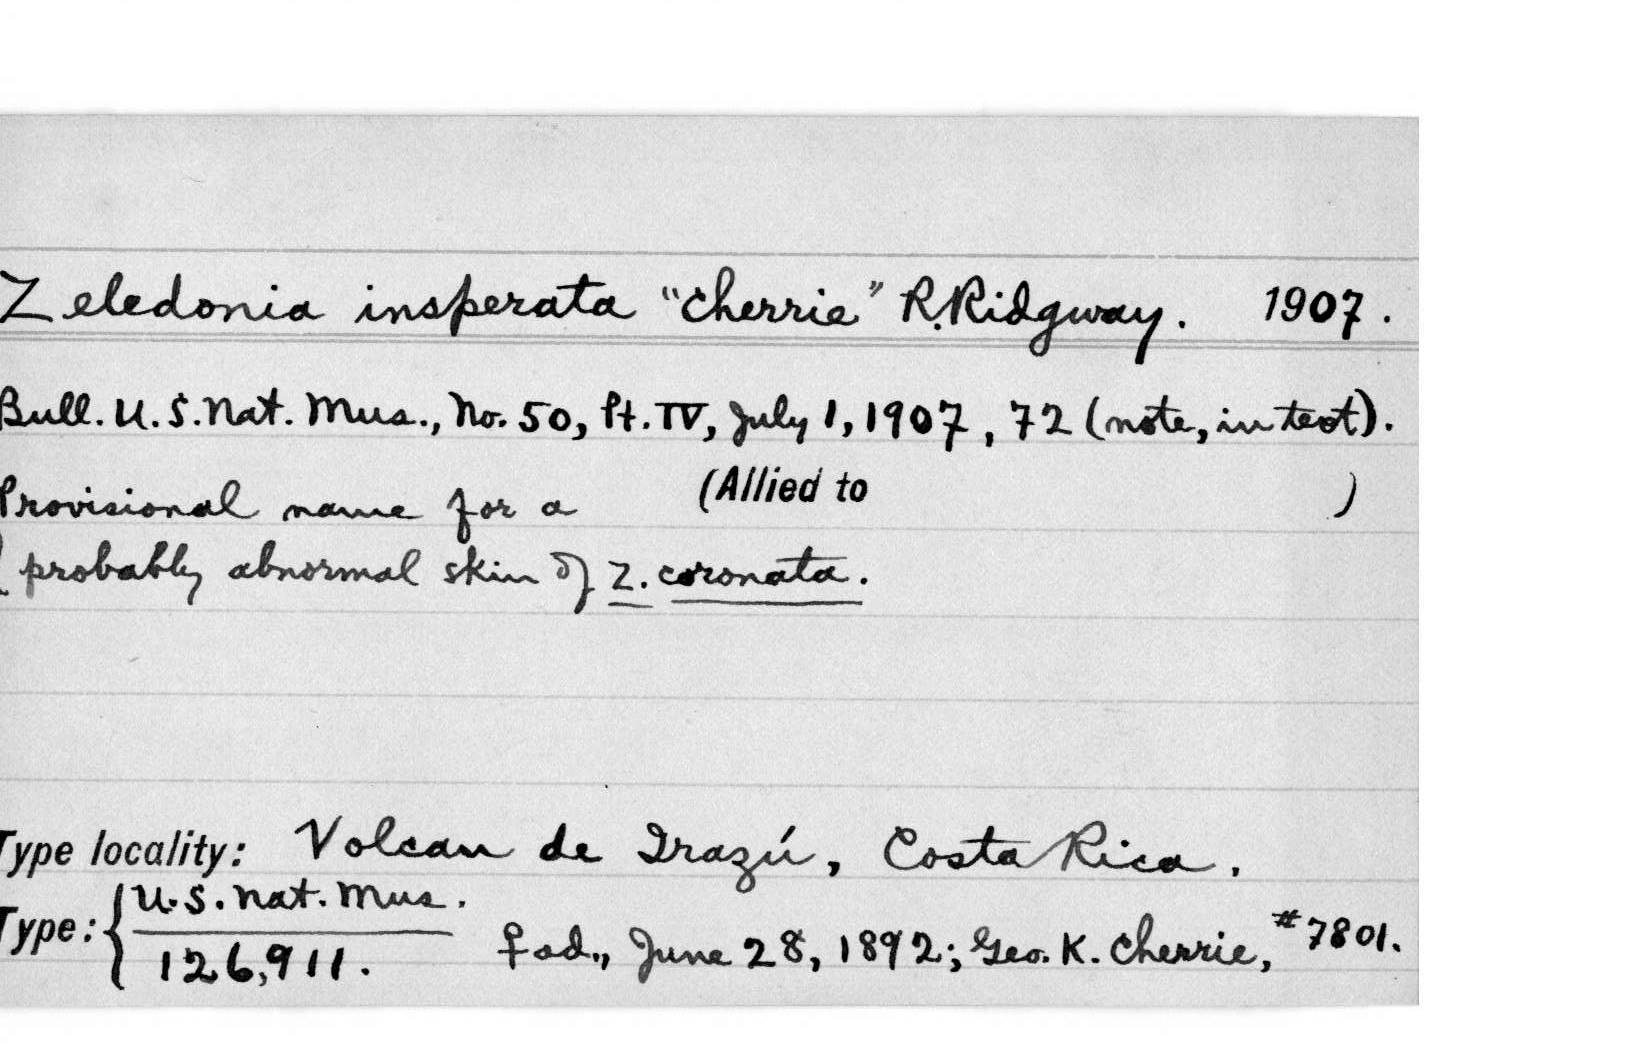 Zeledonia insperata "Cherrie" R. Ridgway. 1907.
Bull. U. S. Nat. Mus., No. 50, Pt. IV, July 1, 1907, 72 (note, in text).
(Allied to )
Provisional name for a
probably abnormal skin of Z. coronata.
Type locality: Volcan de Irazú, Costa Rica.
Type: { U. S. Nat. Mus.
126,911. ♀ ad., June 28, 1892; Geo. K. Cherrie, #7801.